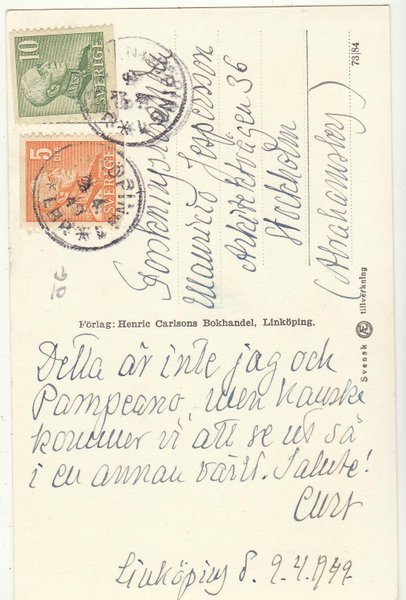 10
SVERIGE
5
SVERIGE
LINKÖPING
LINKÖPING
Maurice Jespersson
Arkitektvägen 36
Stockholm
(Abrahamsberg)
73|84
Förlag: Henric Carlsons Bokhandel, Linköping.
Svensk Æ tillverkning
Detta är inte jag och
Pampeano, men kanske
kommer vi att se ut så
i en annan värld. Salute!
Curt
Linköping d. 9.4.1949